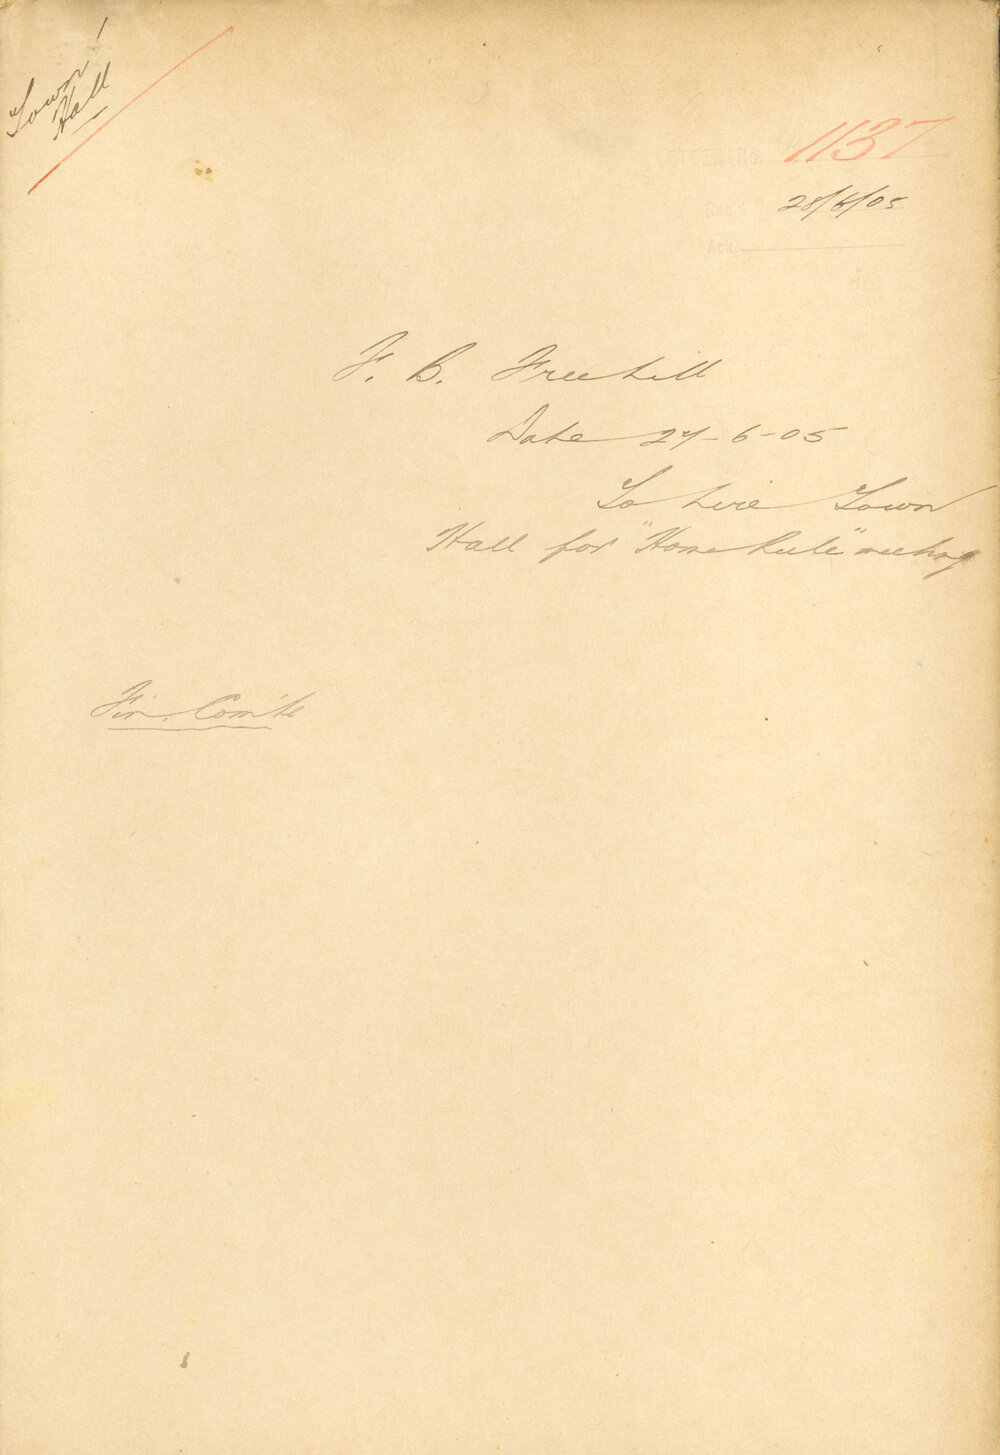 Town
Hall
LETTER No. 1137
28/6/05
Ack.
F. B. Freehill
Date 27-6-05
To hire Town
Hall for "Home Rule" meeting
Fin. Comite